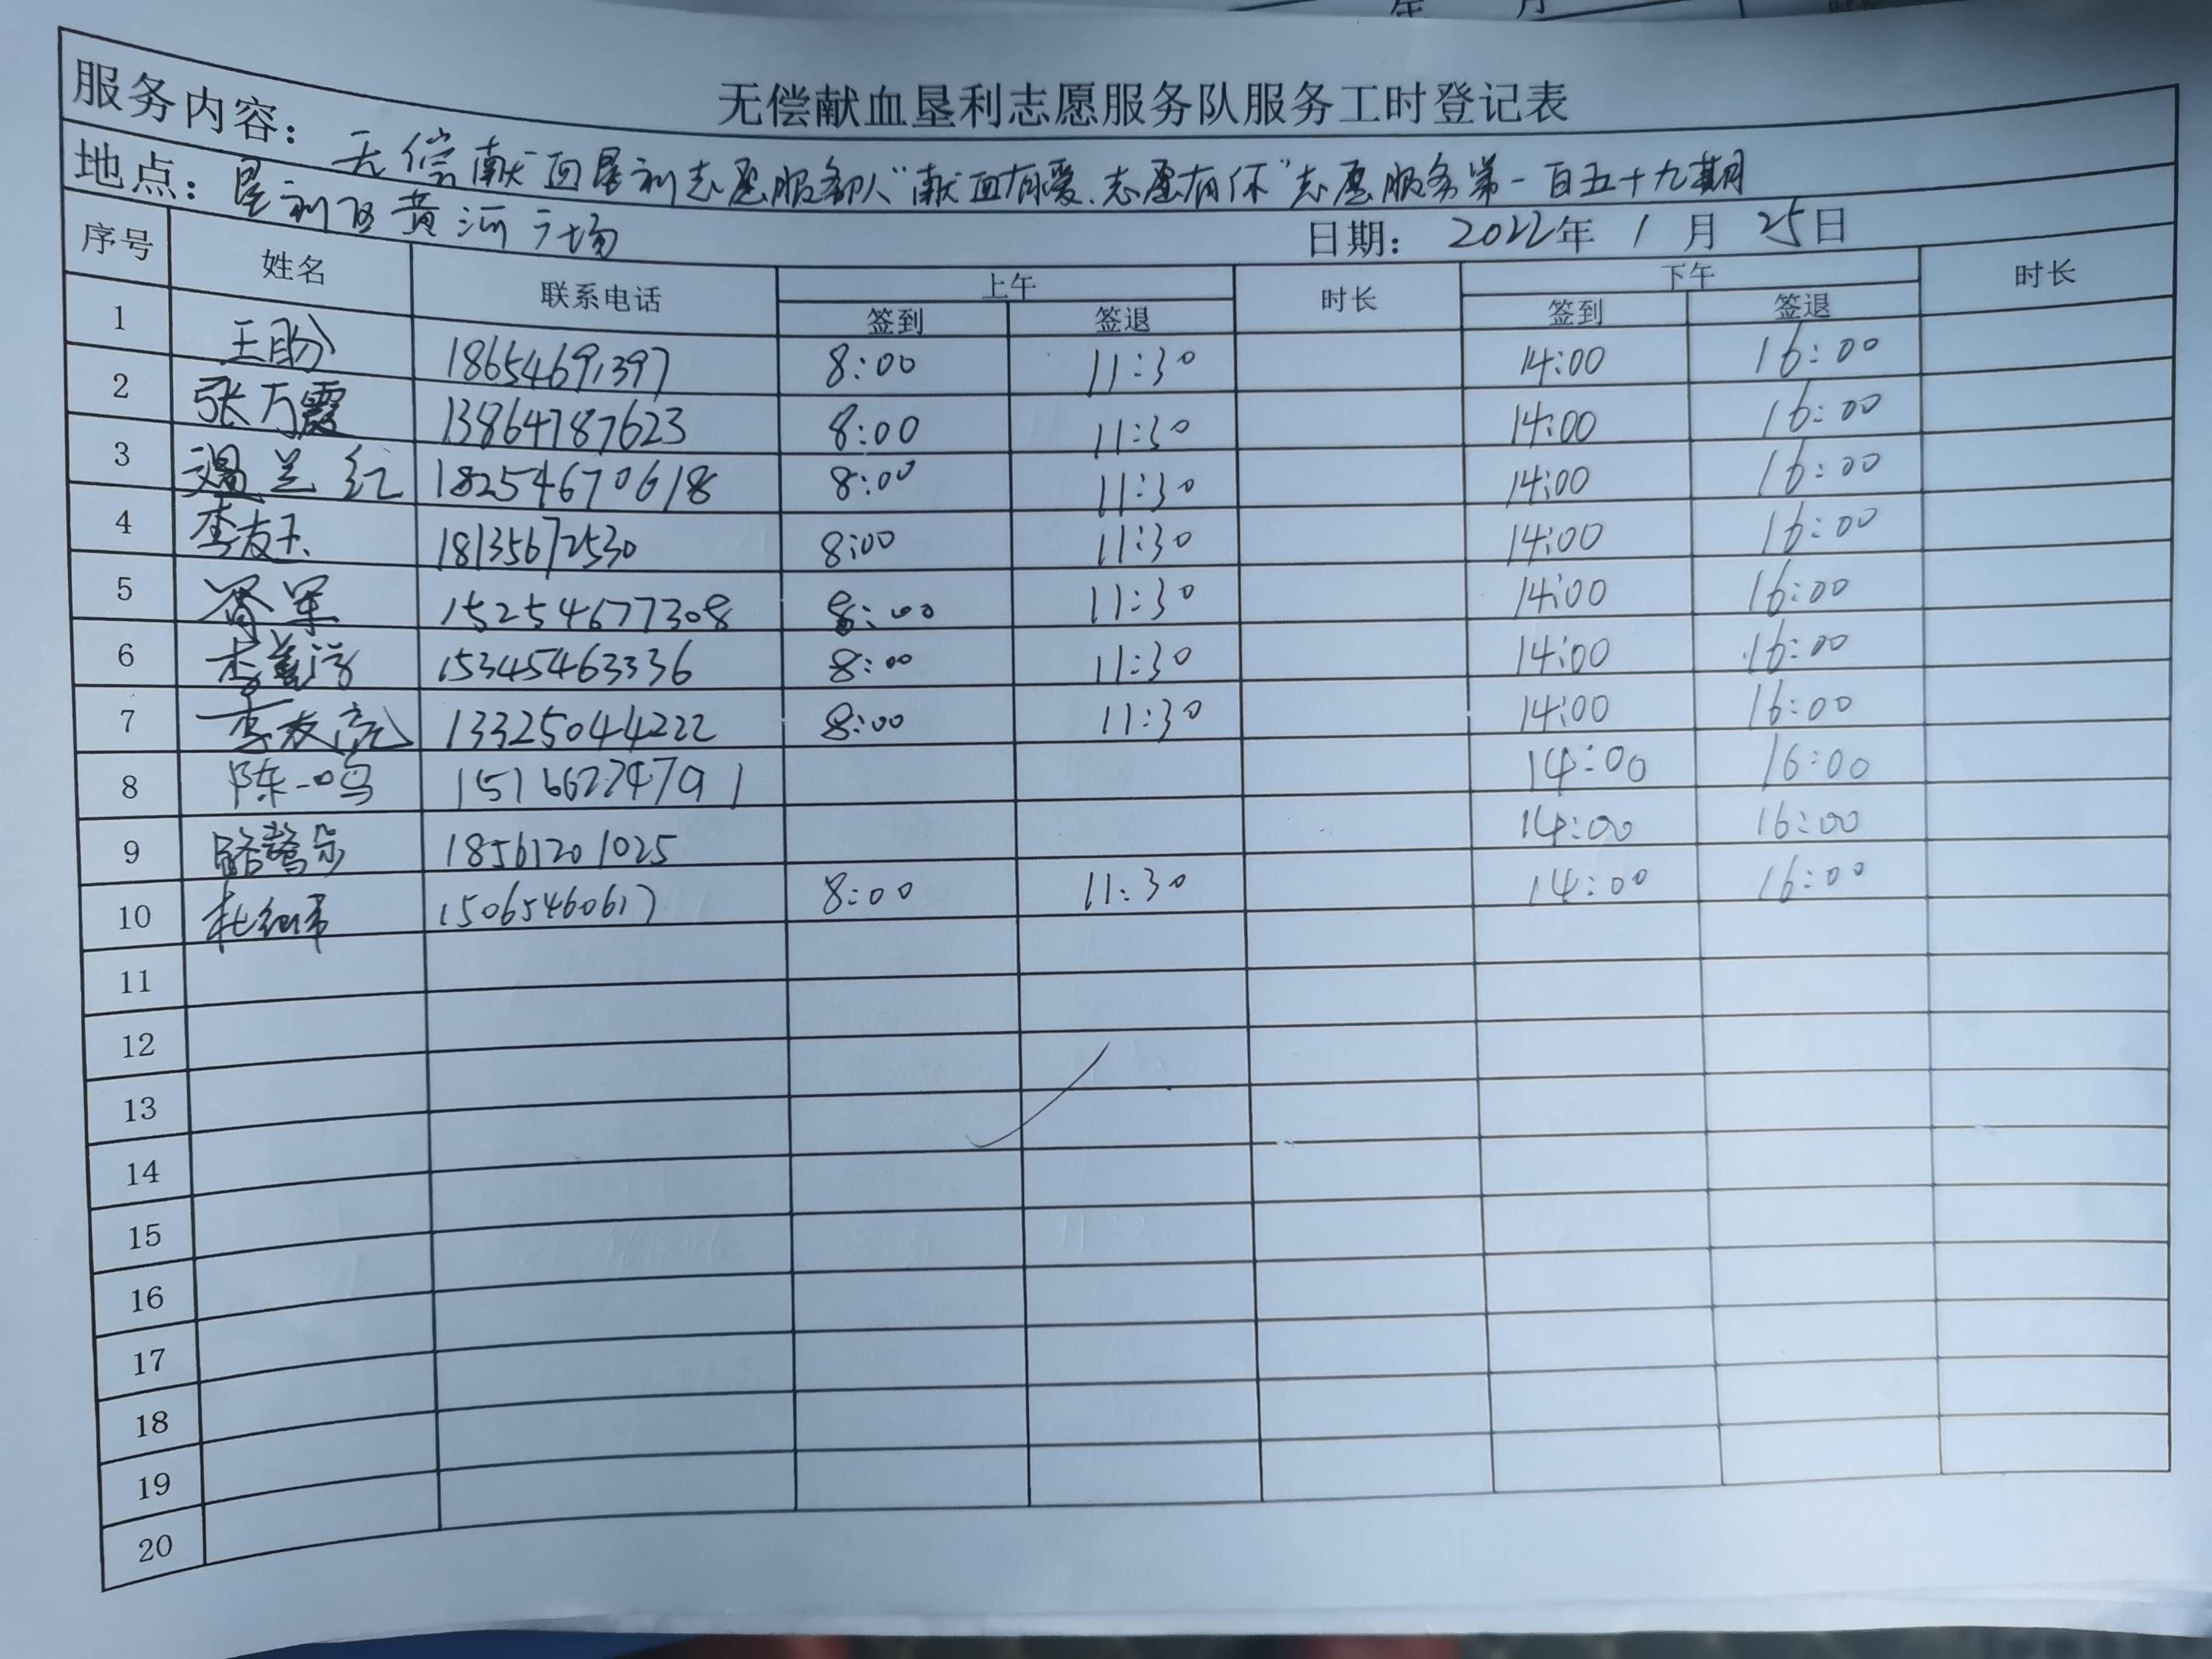 无偿献血垦利志愿服务队服务工时登记表
服务内容： 无偿献血垦利志愿服务队“献血有爱、志愿有你”志愿服务第一百五十九期
地点： 垦利区黄河广场 日期： 2022年 1 月 25日
序号 姓名 联系电话 上午 时长 下午 时长
签到 签退 签到 签退
1 王盼 18654691397 8:00 11:30 14:00 16:00
2 张万霞 13864787623 8:00 11:30 14:00 16:00
3 兰红 18254670618 8:00 11:30 14:00 16:00
4 李友玉 18135672530 8:00 11:30 14:00 16:00
5 军 15254677308 8:00 11:30 14:00 16:00
6 李 15345463336 8:00 11:30 14:00 16:00
7 李友亮 13325044222 8:00 11:30 14:00 16:00
8 陈一鸣 15166227491 14:00 16:00
9 18561201025 14:00 16:00
10 杜 15065460617 8:00 11:30 14:00 16:00
11
12
13
14
15
16
17
18
19
20